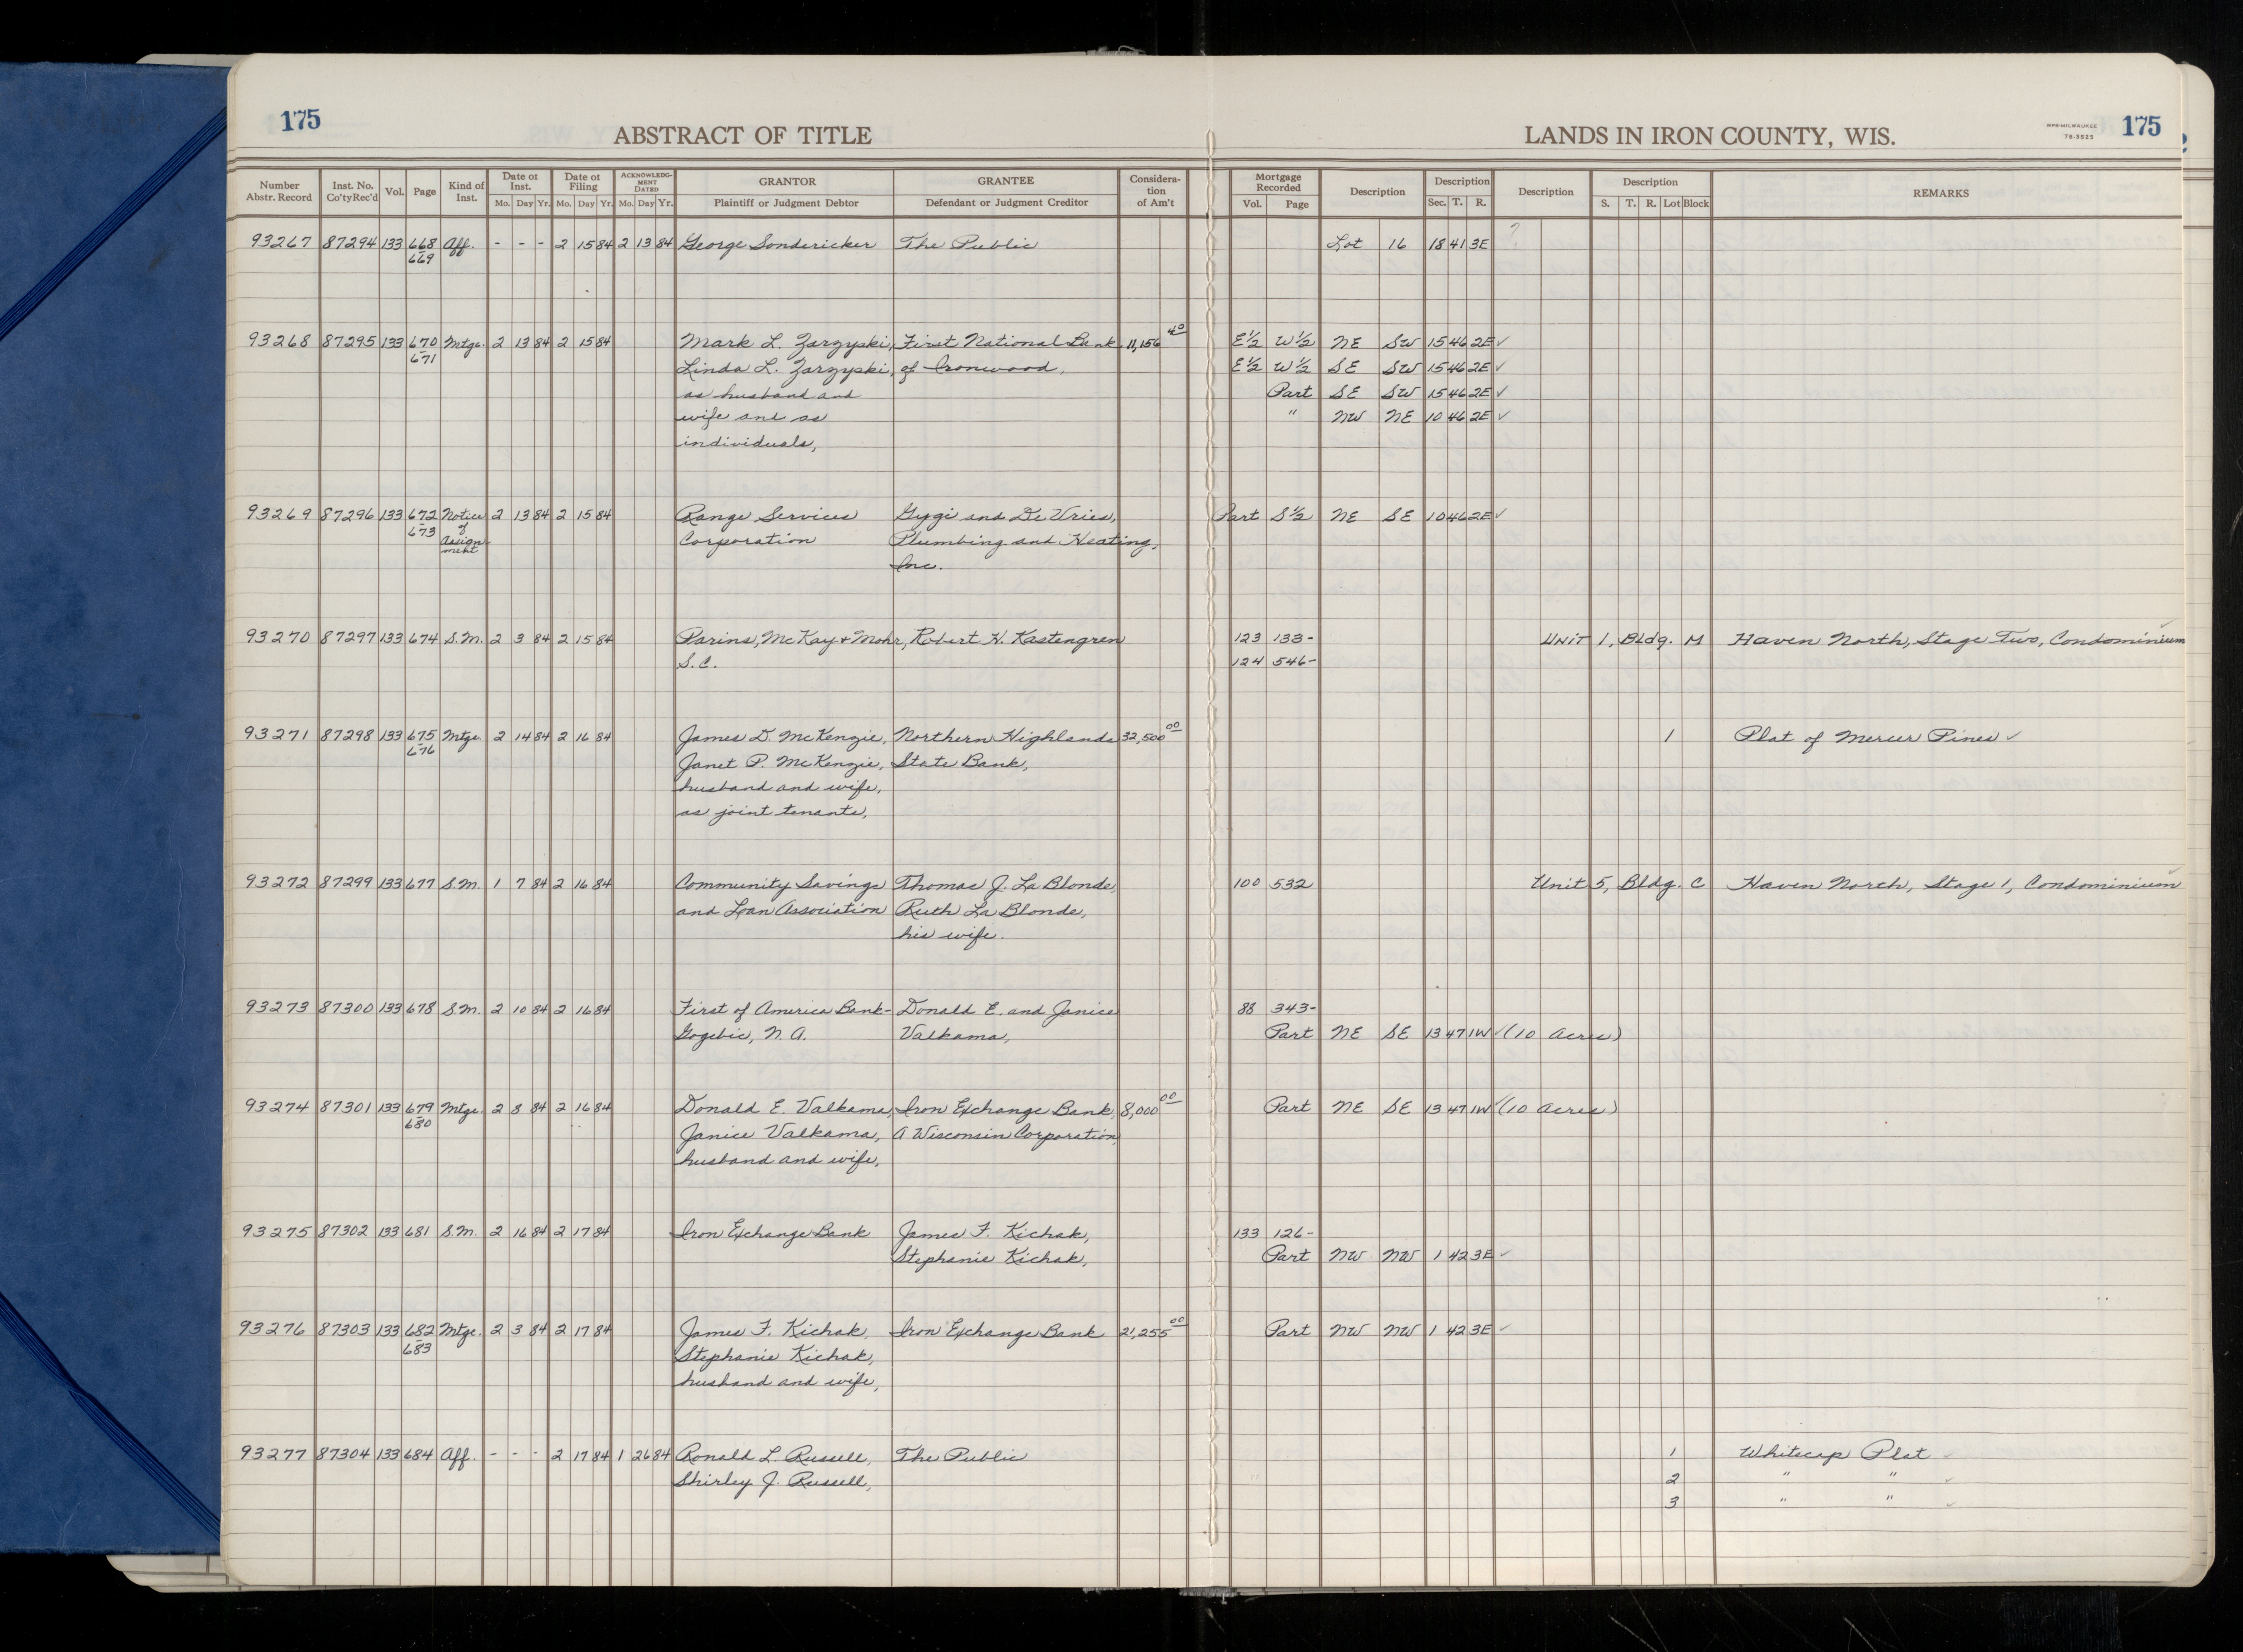 175
ABSTRACT OF TITLE
LANDS IN IRON COUNTY, WIS.
MPB-MILWAUKEE
78-3825
175
Number Abstr. Record Inst. No. Co'ty Rec'd Vol. Page Kind of Inst. Date of Inst. Mo. Day Yr. Date of Filing Mo. Day Yr. ACKNOWLEDGMENT DATED Mo. Day Yr. GRANTOR Plaintiff or Judgment Debtor GRANTEE Defendant or Judgment Creditor Consideration of Am't Mortgage Recorded Vol. Page Description Description Sec. T. R. Description Description S. T. R. Lot Block REMARKS
93267 87294 133 668 Aff. - - - 2 15 84 2 13 84 George Sondericker The Public Lot 16 18 41 3E ?
669
93268 87295 133 670 Mtge. 2 13 84 2 15 84 Mark L. Zarzyski, First National Bank 11,156 40 E½ W½ NE SW 15 46 2E ✓
671 Linda L. Zarzyski, of Ironwood, E½ W½ SE SW 15 46 2E ✓
as husband and Part SE SW 15 46 2E ✓
wife and as " NW NE 10 46 2E ✓
individuals,
93269 87296 133 672 Notice 2 13 84 2 15 84 Range Services Gygi and De Vries, Part S½ NE SE 10 46 2E ✓
673 of Assignment Corporation Plumbing and Heating,
Inc.
93270 87297 133 674 S.M. 2 3 84 2 15 84 Parins, McKay + Mohr, Robert H. Kastengren 123 133- Unit 1, Bldg. M Haven North, Stage Two, Condominium ✓
S.C. 124 546-
93271 87298 133 675 Mtge. 2 14 84 2 16 84 James D. McKenzie, Northern Highlands 32,500 00 1 Plat of Mercer Pines ✓
676 Janet P. McKenzie, State Bank,
husband and wife,
as joint tenants,
93272 87299 133 677 S.M. 1 7 84 2 16 84 Community Savings Thomas J. La Blonde, 100 532 Unit 5, Bldg. C Haven North, Stage 1, Condominium ✓
and Loan Association Ruth La Blonde,
his wife.
93273 87300 133 678 S.M. 2 10 84 2 16 84 First of America Bank- Donald E. and Janice 88 343-
Gogebic, N.A. Valkama, Part NE SE 13 47 1W ✓ (10 acres)
93274 87301 133 679 Mtge. 2 8 84 2 16 84 Donald E. Valkama, Iron Exchange Bank, 8,000 00 Part NE SE 13 47 1W ✓ (10 acres)
680 Janice Valkama, A Wisconsin Corporation,
husband and wife,
93275 87302 133 681 S.M. 2 16 84 2 17 84 Iron Exchange Bank James F. Kichak, 133 126-
Stephanie Kichak, Part NW NW 1 42 3E ✓
93276 87303 133 682 Mtge. 2 3 84 2 17 84 James F. Kichak, Iron Exchange Bank 21,255 00 Part NW NW 1 42 3E ✓
683 Stephanie Kichak,
husband and wife,
93277 87304 133 684 Aff. - - - 2 17 84 1 26 84 Ronald L. Russell, The Public 1 Whitecap Plat ✓
Shirley J. Russell, 2 " " ✓
3 " " ✓